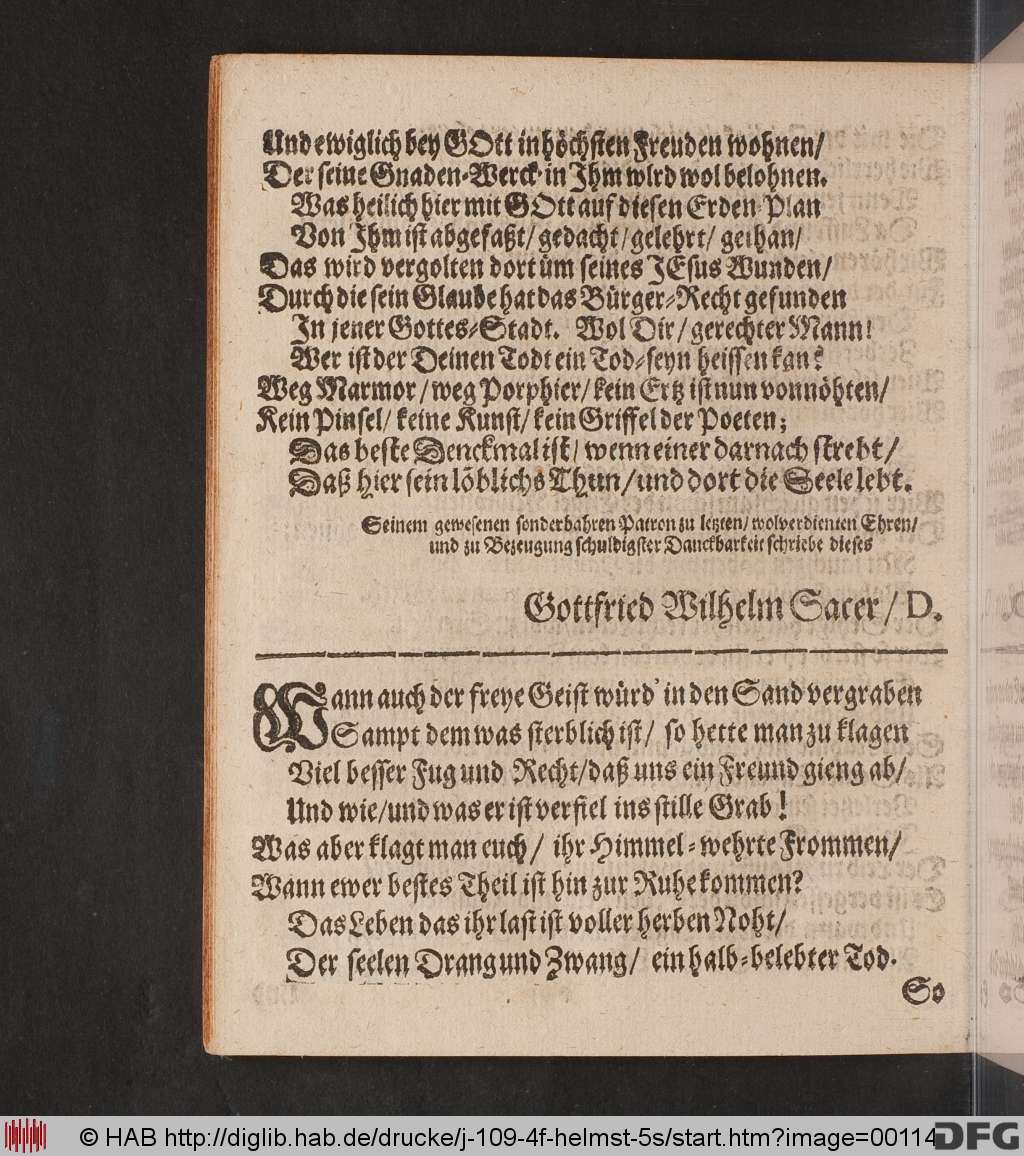 Und ewiglich bey GOtt in höchsten Freuden wohnen/
Der seine Gnaden-Werck in Ihm wird wol belohnen.
Was heilich hier mit GOtt auf diesen Erden-Plan
Von Ihm ist abgefaßt/ gedacht/ gelehrt/ gethan/
Das wird vergolten dort üm seines JEsus Wunden/
Durch die sein Glaube hat das Bürger-Recht gefunden
In jener Gottes-Stadt. Wol Dir/ gerechter Mann!
Wer ist der Deinen Todt ein Tod-seyn heissen kan?
Weg Marmor/ weg Porphier/ kein Ertz ist nun vonnöhten/
Kein Pinsel/ keine Kunst/ kein Griffel der Poeten;
Das beste Denckmal ist/ wenn einer darnach strebt/
Daß hier sein löblichs Thun/ und dort die Seele lebt.
Seinem gewesenen sonderbahren Patron zu letzten/ wolverdienten Ehren/
und zu Bezeugung schuldigster Danckbarkeit schriebe dieses
Gottfried Wilhelm Sacer/ D.
Wann auch der freye Geist würd' in den Sand vergraben
Sampt dem was sterblich ist/ so hette man zu klagen
Viel besser Fug und Recht/ daß uns ein Freund gieng ab/
Und wie/ und was er ist verfiel ins stille Grab!
Was aber klagt man euch/ ihr Himmel-wehrte Frommen/
Wann ewer bestes Theil ist hin zur Ruhe kommen?
Das Leben das ihr last ist voller herben Noht/
Der seelen Drang und Zwang/ ein halb-belebter Tod.
So
© HAB http://diglib.hab.de/drucke/j-109-4f-helmst-5s/start.htm?image=00114
DFG